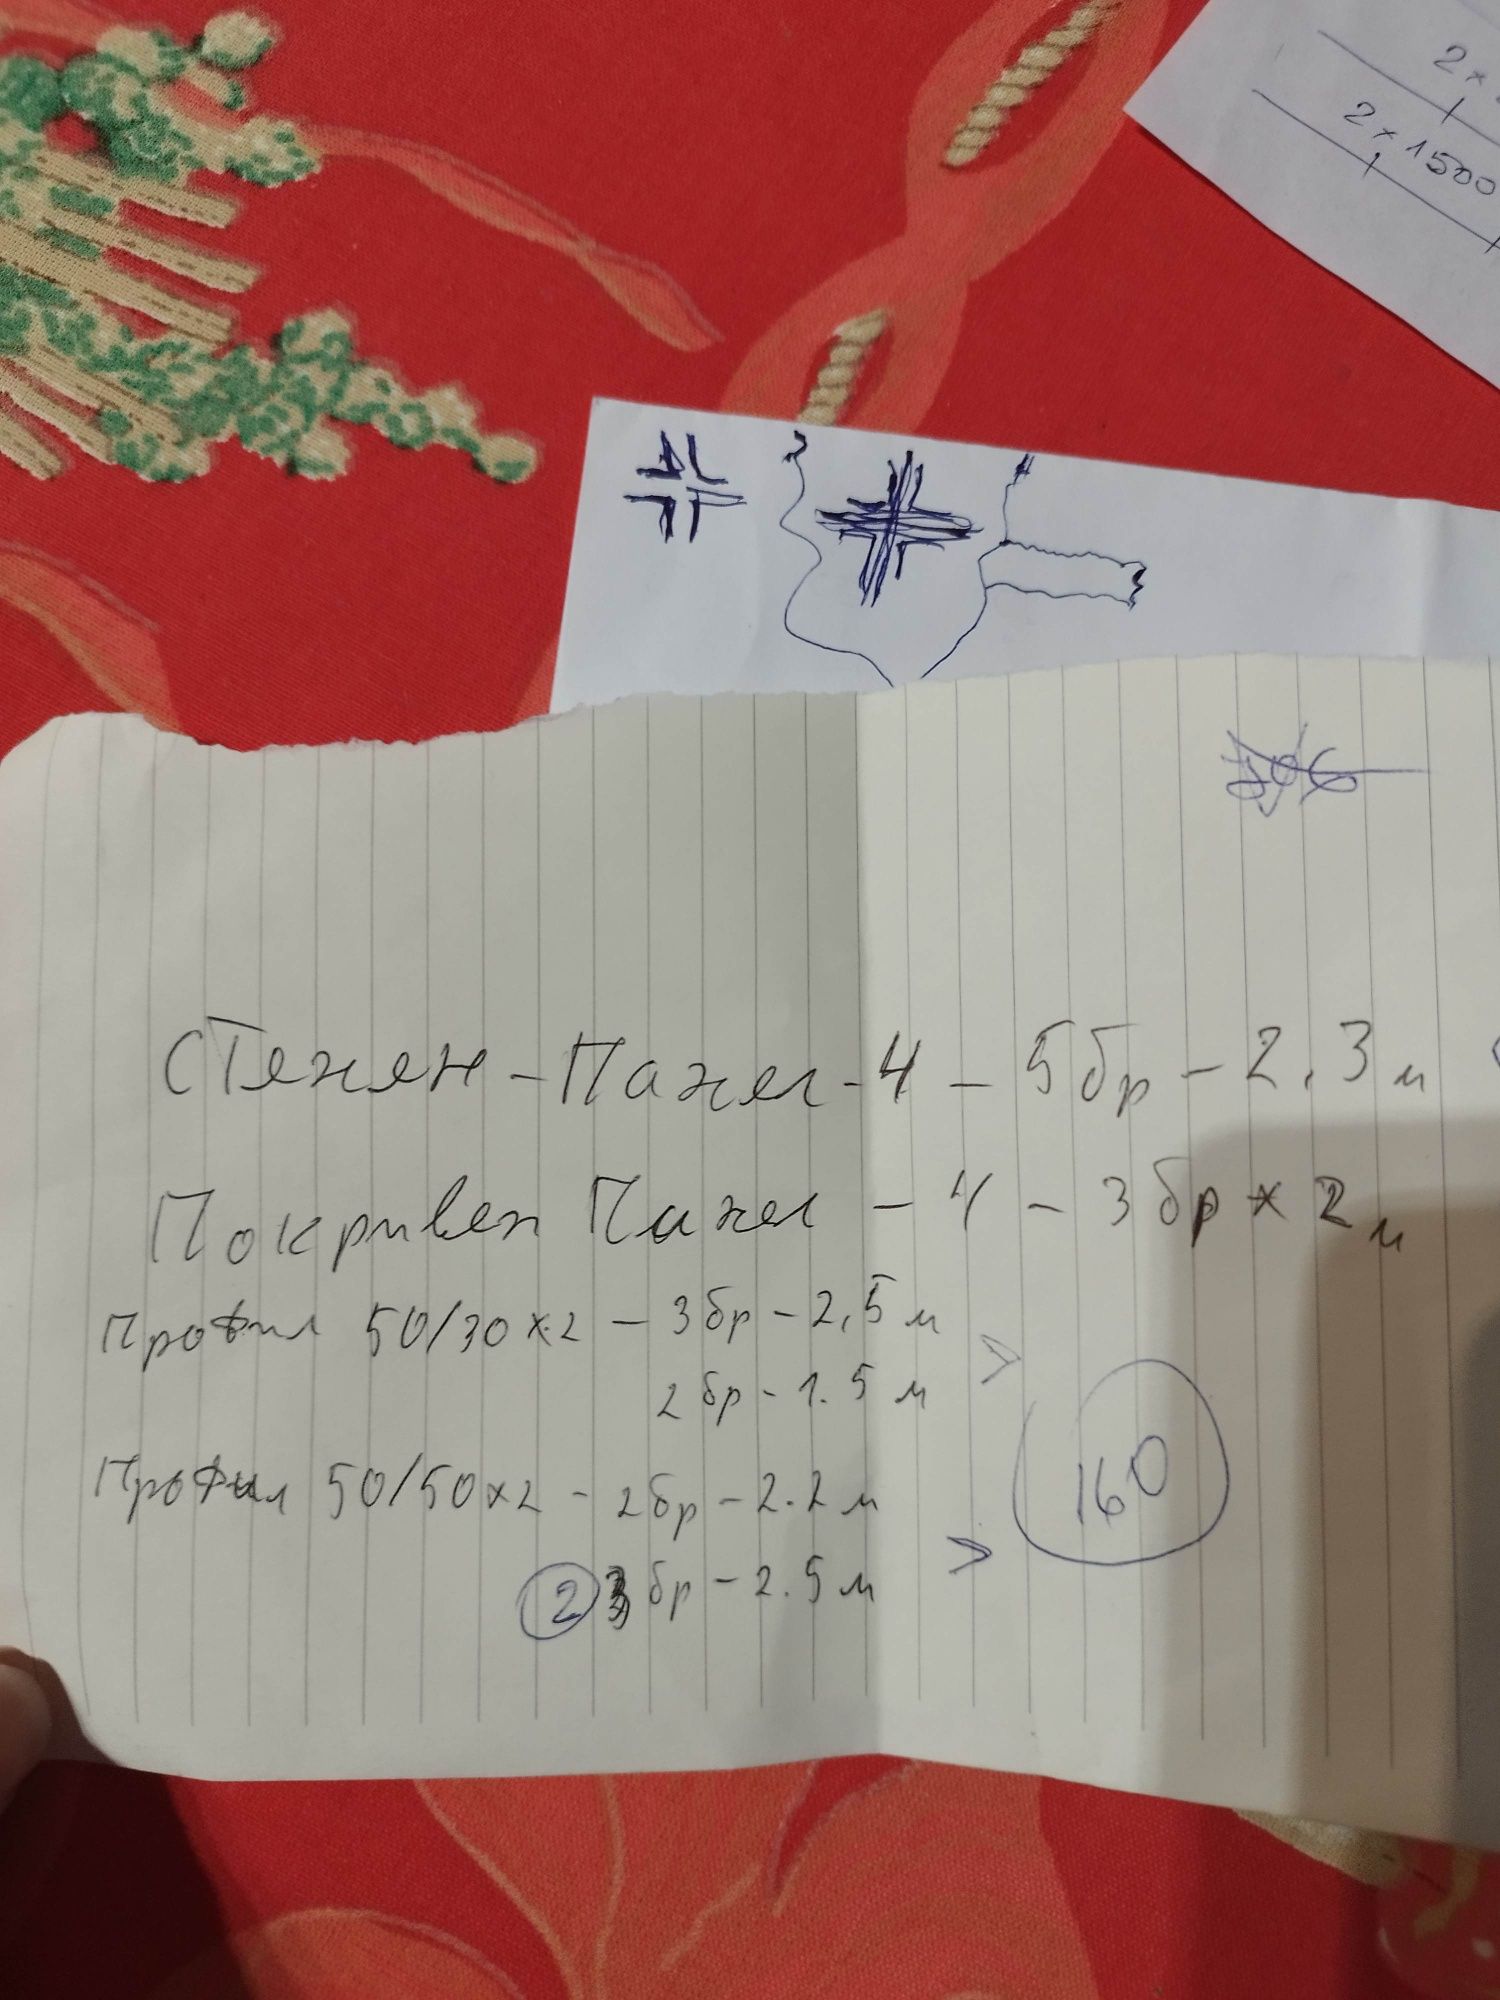 2 ×
2 × 1500
Стенен - Панел - 4 - 5 бр - 2.3 м
Покривен Панел - 4 - 3 бр × 2 м
Профил 50/30 × 2 - 3 бр - 2,5 м
2 бр - 1.5 м
160
Профил 50/50 × 2 - 2 бр - 2.2 м
2 3 бр - 2.5 м